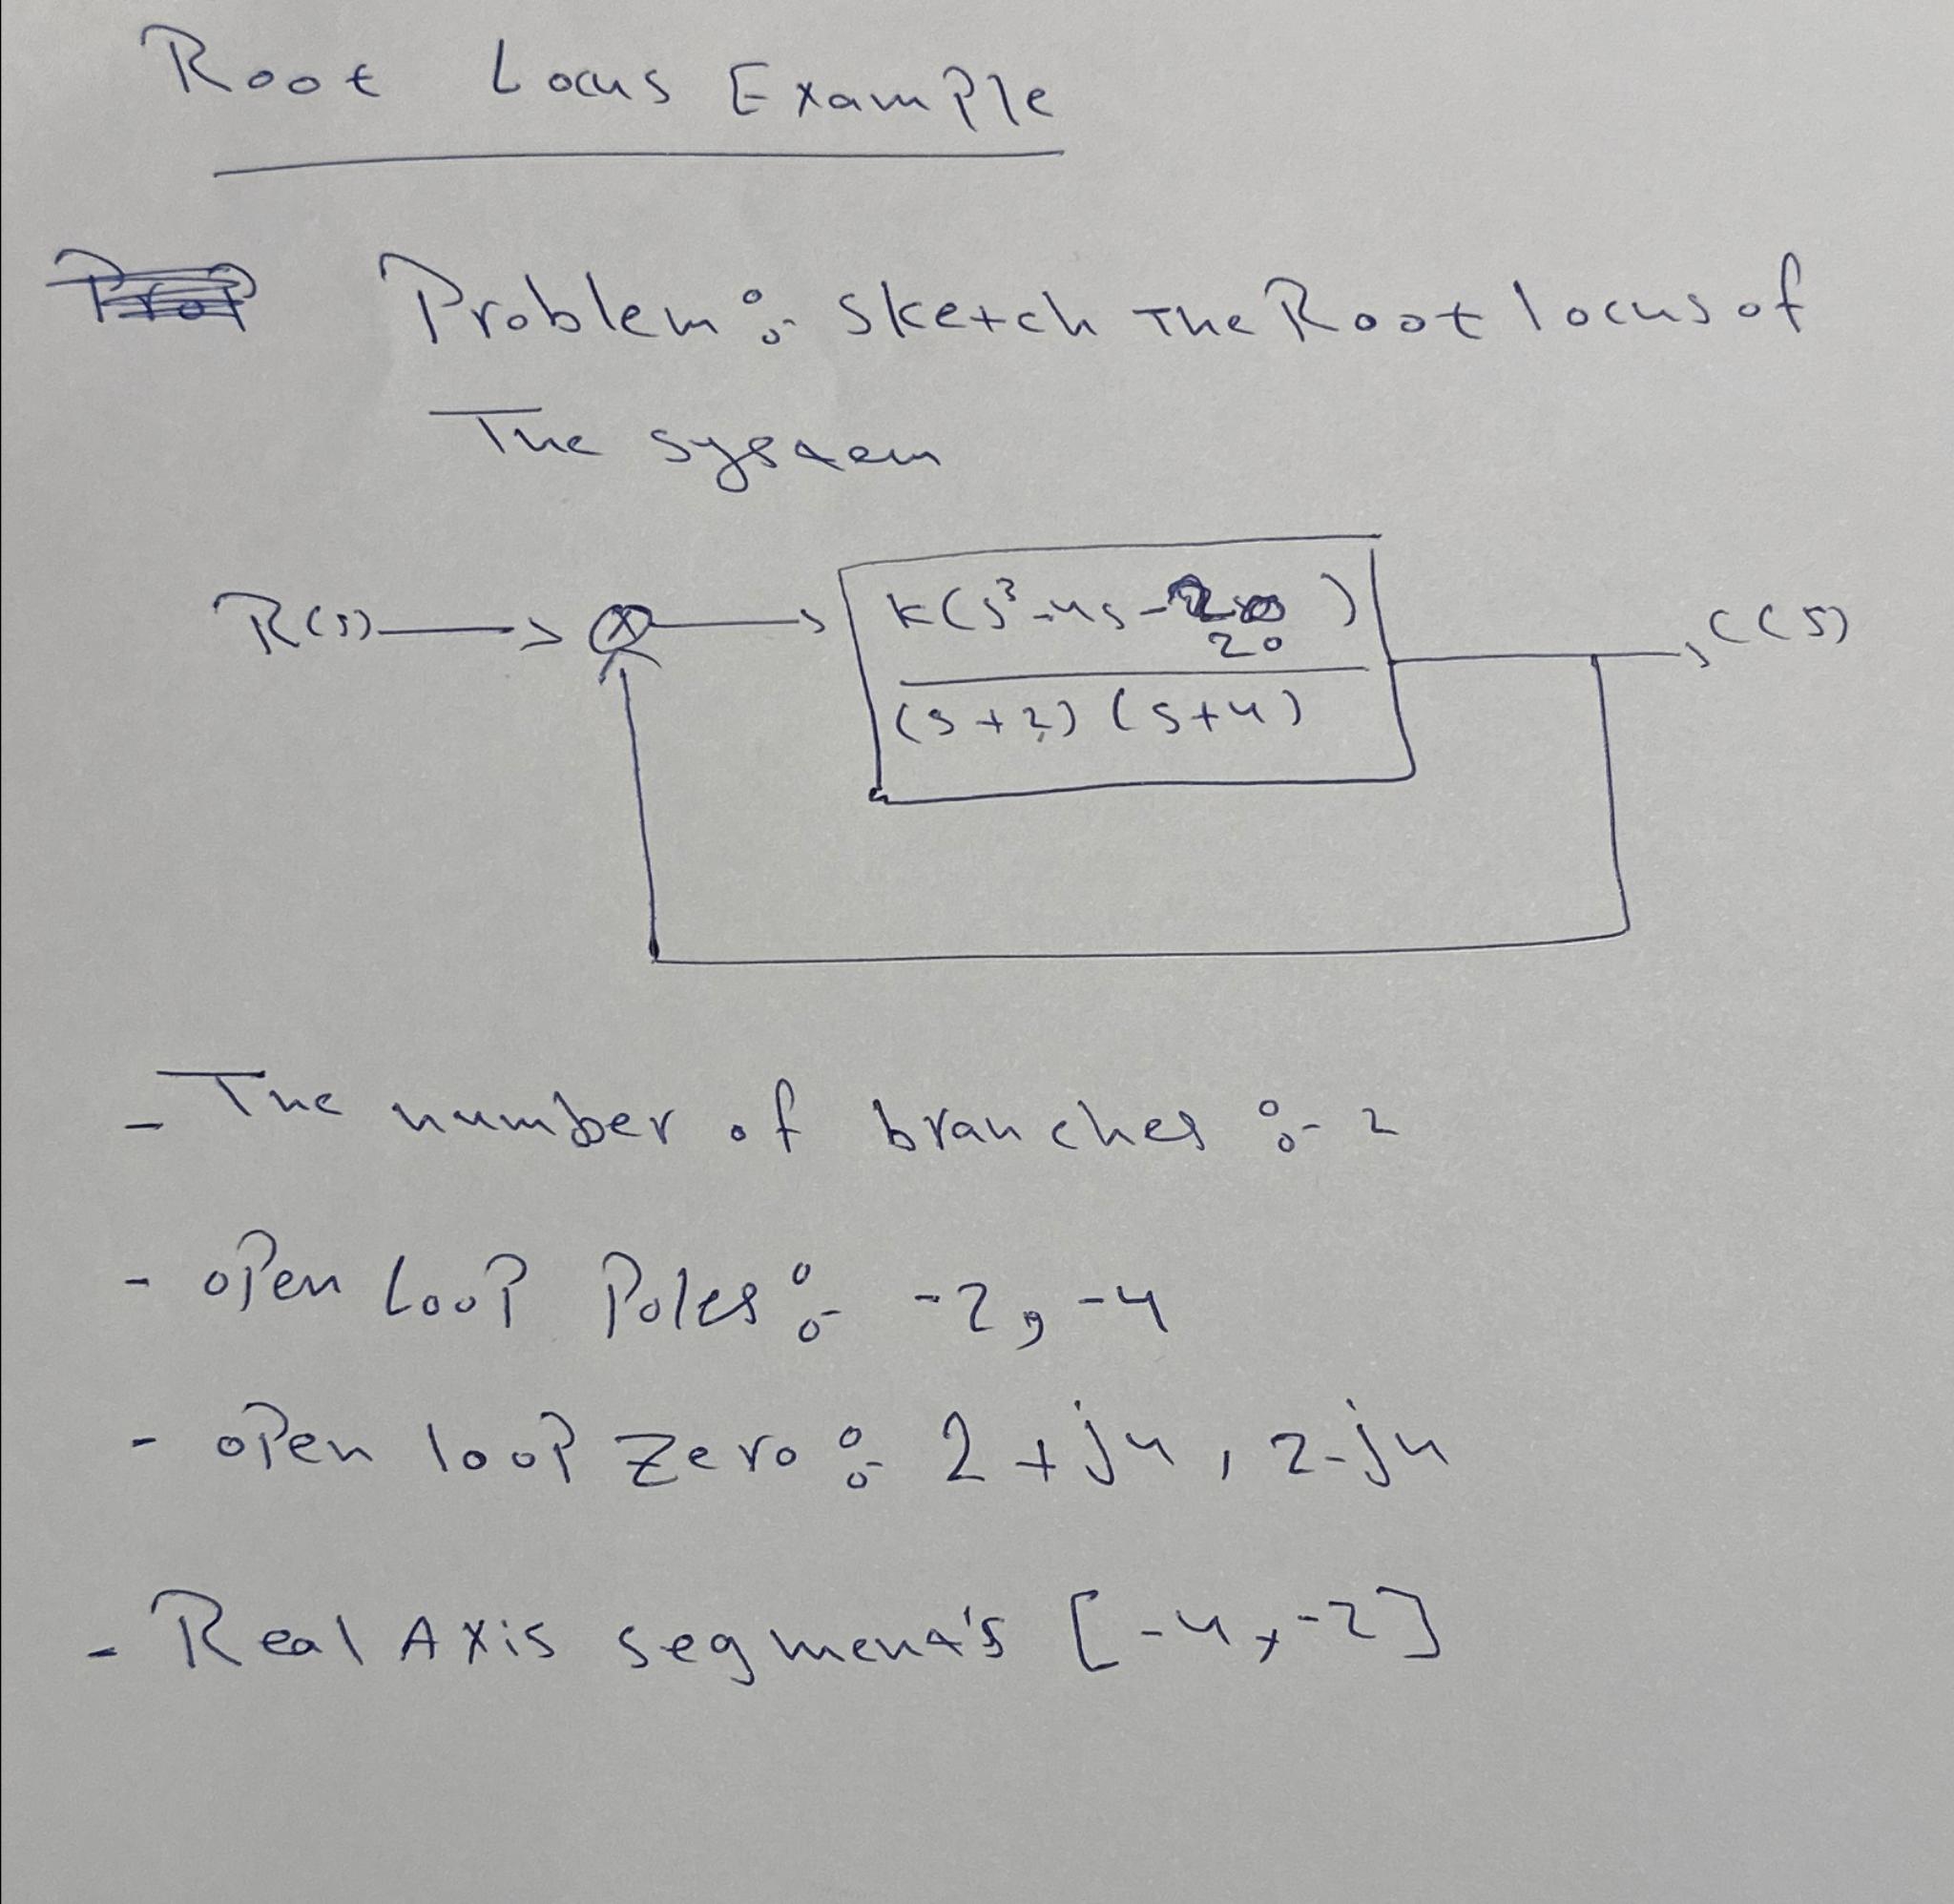 Root Locus Example
Problem:- Sketch The Root locus of
The system
R(s)
K(s²-4s-20)
(s+2)(s+4)
C(s)
- The number of branches :- 2
- open Loop Poles :- -2, -4
- open loop Zero :- 2+j4, 2-j4
- Real Axis segment's [-4, -2]